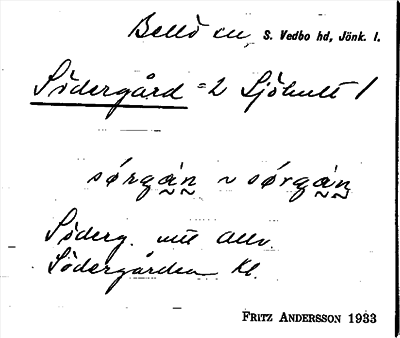 Bellö sn, S. Vedbo hd, Jönk. l.
Södergård = 2 Sjöhult 1
sørgàn ~ sørgàn
Söderg. utt. allm.
Södergården Kl.
FRITZ ANDERSSON 1933